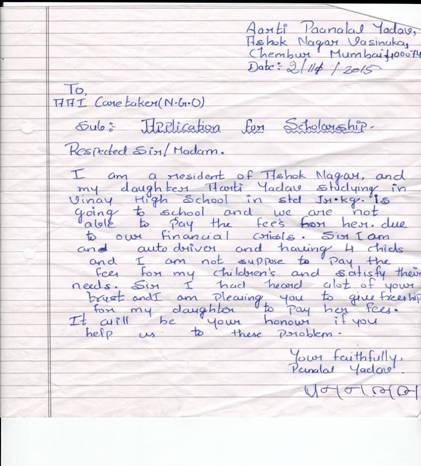 Aarti Paanalal Yadav,
Ashok Nagar Vasinaka,
Chembur Mumbai 400074
Date: 2/11/2015
To,
AAI Caretaker(N.G.O)
Sub: Application for Scholarship.
Respected Sir/Madam.
I am a resident of Ashok Nagar, and
my daughter Aarti Yadav studying in
Vinay High School in std Jr.kg. is
going to school and we are not
able to pay the fees for her. due
to our financial crisis. Sir I am
and auto driver and having 4 chids
and I am not suppose to pay the
fees for my children's and satisfy their
needs. Sir I had heard alot of your
trust and I am pleaing you to give freeship
for my daughter to pay her fees.
It will be your honour if you
help us to these problem.
Your faithfully,
Panalal Yadav